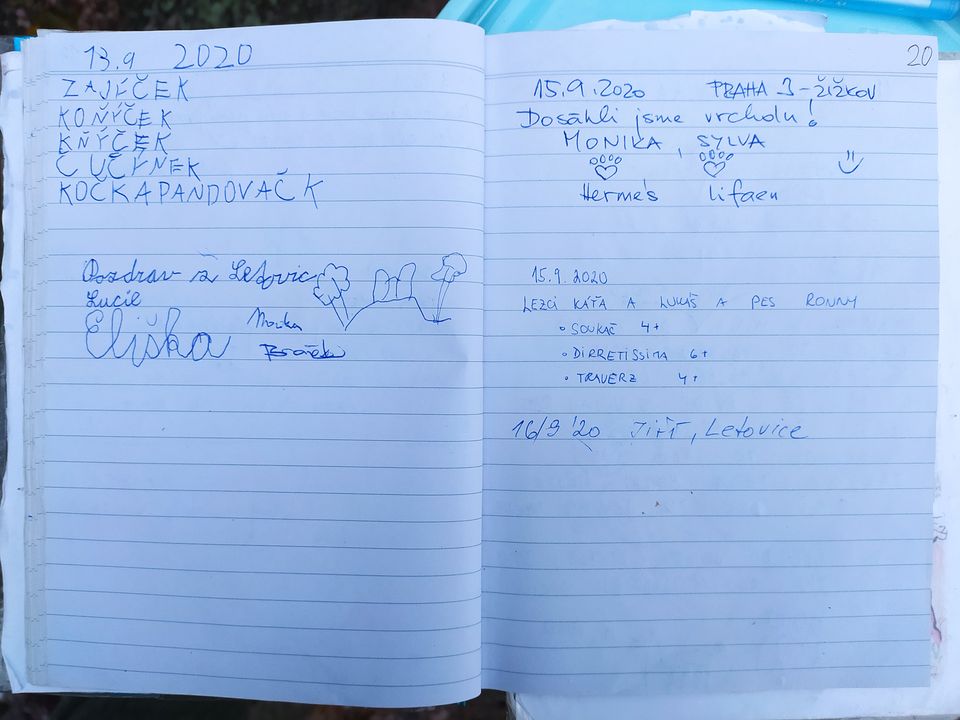 13.9 2020
ZAJÍČEK
KOŇÝČEK
KŇÝČEK
ČUČÝNEK
KOČKAPANDOVAČK
Pozdrav z Letovic
Lucil
Eliška
20
15.9.2020 PRAHA 3-ŽIŽKOV
Dosáhli jsme vrcholu!
MONIKA, SYLVA
Hermés Lifaen
15.9.2020
LEZCI KÁŤA A LUKÁŠ A PES RONNY
• SOUKAČ 4+
• DIRRETISSIMA 6+
• TRAVERZ 4+
16/9 '20 Jiří, Letovice